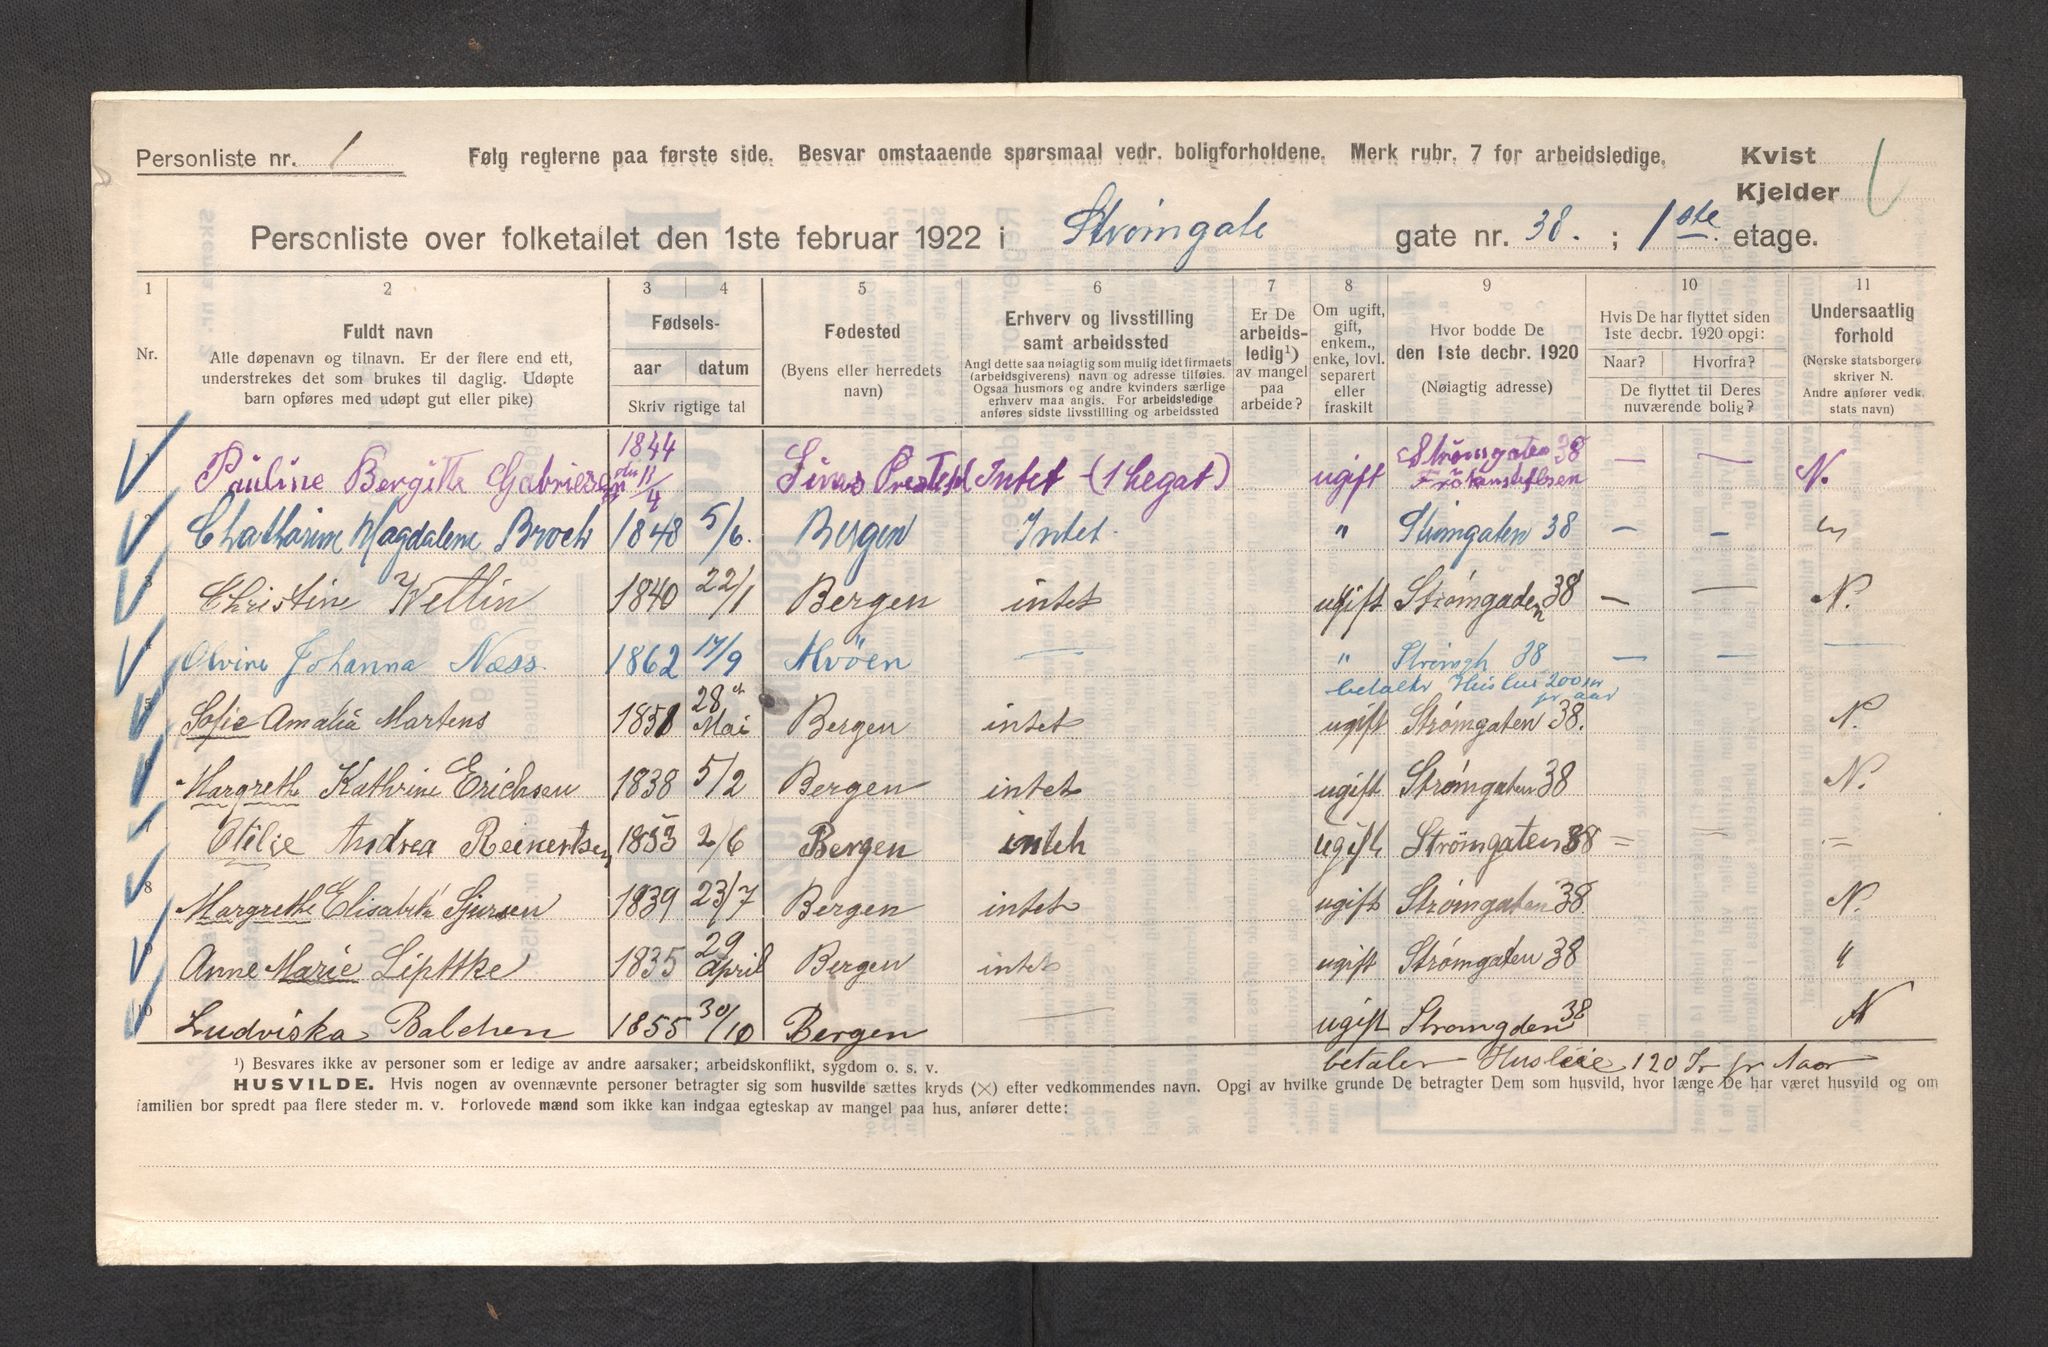 Personliste nr. 1 Følg reglerne paa første side. Besvar omstaaende spørsmaal vedr. boligforholdene. Merk rubr. 7 for arbeidsledige. Kvist
Kjelder
Personliste over folketallet den 1ste februar 1922 i Strømgate gate nr. 38. ; 1ste etage.
1 2 3 4 5 6 7 8 9 10 11
Nr.
Fuldt navn
Alle døpenavn og tilnavn. Er der flere end ett, understrekes det som brukes til daglig. Udøpte barn opføres med udøpt gut eller pike)
Fødsels-
aar datum
Skriv rigtige tal
Fødested
(Byens eller herredets navn)
Erhverv og livsstilling samt arbeidssted
Angi dette saa nøiagtig som mulig idet firmaets (arbeidsgiverens) navn og adresse tilføies. Ogsaa husmors og andre kvinders særlige erhverv maa angis. For arbeidsledige anføres sidste livsstilling og arbeidssted
Er De arbeidsledig¹) av mangel paa arbeide?
Om ugift, gift, enkem., enke, lovl. separert eller fraskilt
Hvor bodde De den 1ste decbr. 1920
(Nøiagtig adresse)
Hvis De har flyttet siden 1ste decbr. 1920 opgi:
Naar? Hvorfra?
De flyttet til Deres nuværende bolig?
Undersaatlig forhold
(Norske statsborgere skriver N.
Andre anfører vedk. stats navn)
1 Pauline Bergitte Gabrielsen 1844 11/4 Intet (1 Legat) ugift Strømgaten 38 — — N.
2 Chatharine Magdalene Broch 1848 5/6. Bergen Intet. " Strømgaten 38 — — "
3 Christine Wetlin 1840 22/1 Bergen intet ugift Strømgaden 38 — — N.
4 Olvine Johanna Næss. 1862 17/9 Alvöen — " 38 — — —
betaler Husleie 200 kr pr aar
5 Sofie Amalia Martens 1851 28 Mai Bergen intet ugift Strømgaten 38. N.
6 Margreth Kathrine Erichsen 1838 5/2 Bergen intet ugift Strømgaten 38 N.
7 Otilie Andrea Reinertsen 1853 2/6 Bergen inteh ugift Strømgaten 38 = = =
8 Margrethe Elisabeth Sjursen 1839 23/7 Bergen intet ugift Strømgaten 38. N.
9 Anne Marie Lipttke 1835 29 april Bergen intet ugift Strømgaten 38 "
10 Ludviska Balchen 1855 30/10 Bergen — ugift Stromgden 38 N
betaler Husleie 120 Kr pr Aar
¹) Besvares ikke av personer som er ledige av andre aarsaker; arbeidskonflikt, sygdom o. s. v.
HUSVILDE. Hvis nogen av ovennævnte personer betragter sig som husvilde sættes kryds (×) efter vedkommendes navn. Opgi av hvilke grunde De betragter Dem som husvild, hvor længe De har været husvild og om
familien bor spredt paa flere steder m. v. Forlovede mænd som ikke kan indgaa egteskap av mangel paa hus, anfører dette: